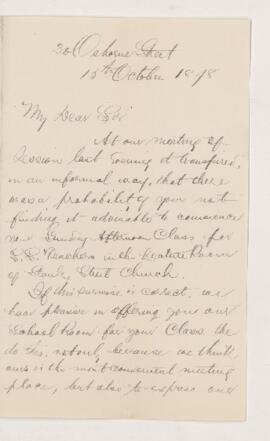 30 Osborne Street
15th October 1898
My Dear Sir
At our meeting of
Session last evening it transpired,
in an informal way, that there
was a probability of your not
finding it advisable to commence
your Sunday Afternoon Class for
S.S. Teachers in the Lecture Room
of Street Church.
If this surmise is correct, we
have pleasure in offering you our
School Room for your Class. We
do this, not only because we think
ours is the most convenient meeting
place, but also to express our